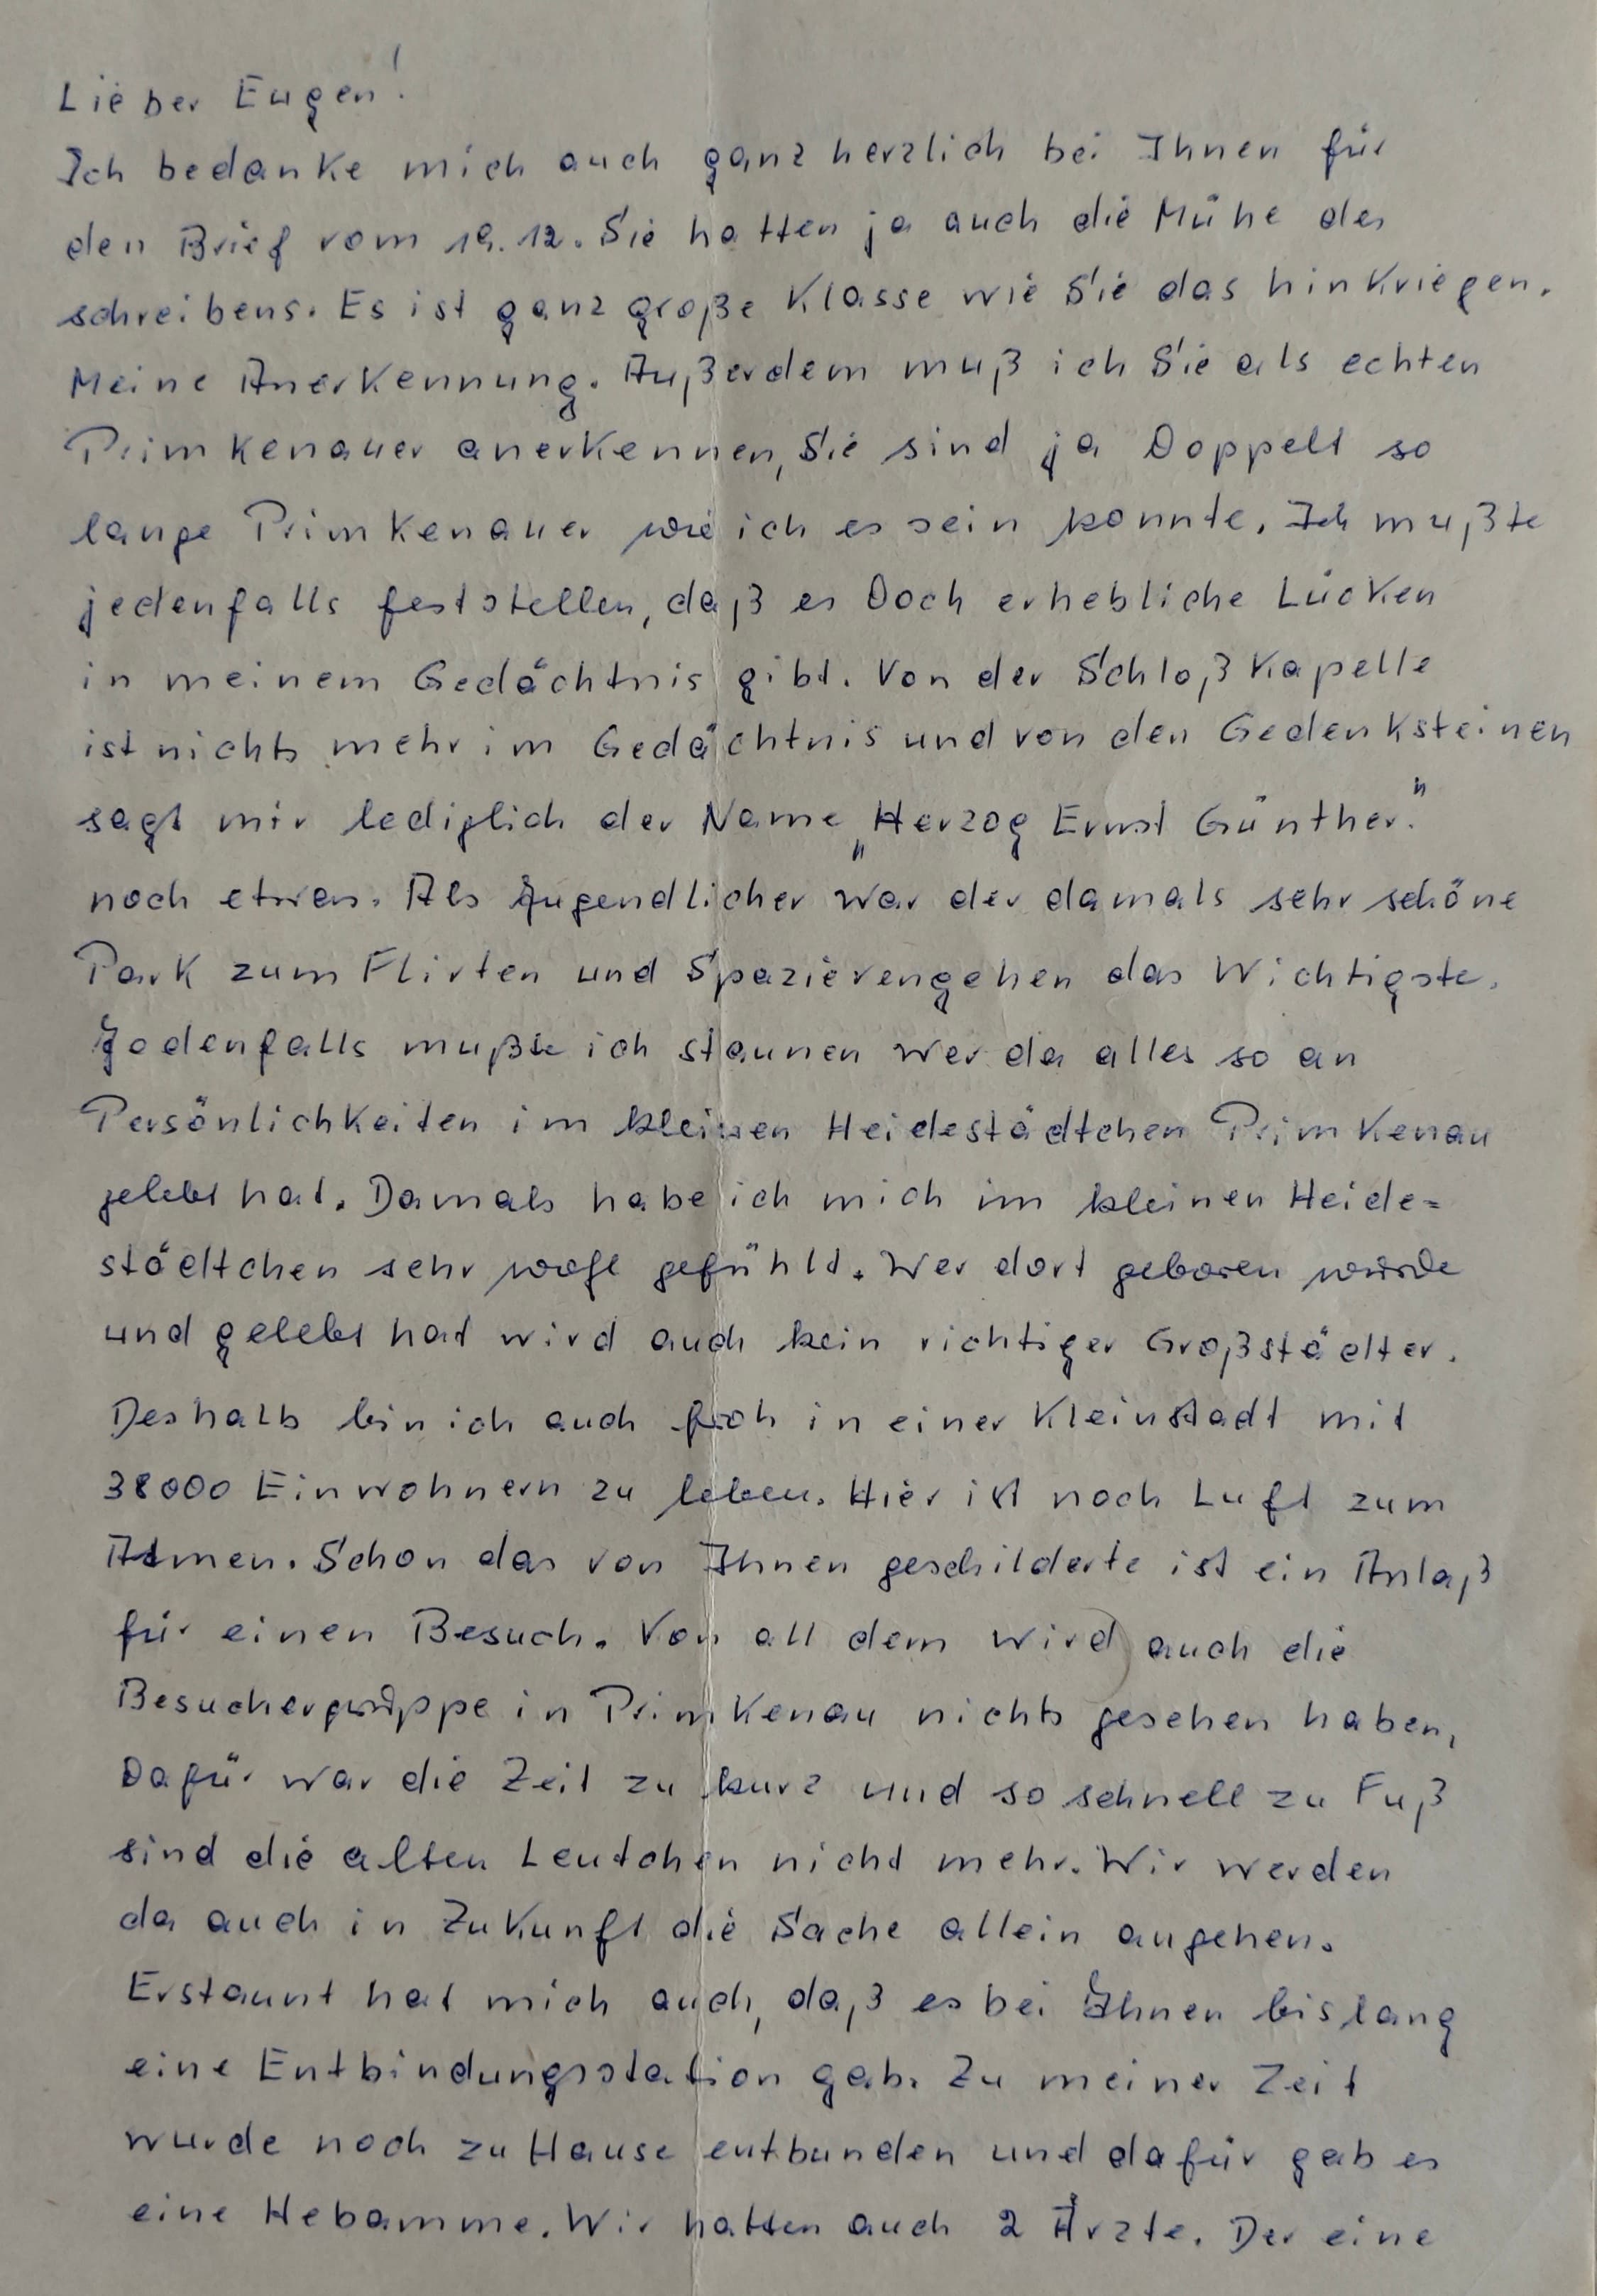 Lieber Eugen!
Ich bedanke mich auch ganz herzlich bei Ihnen für
den Brief vom 19.12. Sie hatten ja auch die Mühe des
schreibens. Es ist ganz große Klasse wie Sie das hinkriegen.
Meine Anerkennung. Außerdem muß ich Sie als echten
Primkenauer anerkennen, Sie sind ja Doppelt so
lange Primkenauer wie ich es sein konnte. Ich mußte
jedenfalls feststellen, daß es Doch erhebliche Lücken
in meinem Gedächtnis gibt. Von der Schloßkapelle
ist nichts mehr im Gedächtnis und von den Gedenksteinen
sagt mir lediglich der Name „Herzog Ernst Günther."
noch etwas. Als Jugendlicher war der damals sehr schöne
Park zum Flirten und Spazierengehen das Wichtigste.
Jedenfalls mußte ich staunen wer da alles so an
Persönlichkeiten im kleinen Heidestädtchen Primkenau
gelebt hat. Damals habe ich mich im kleinen Heide=
städtchen sehr wohl gefühlt. Wer dort geboren wurde
und gelebt hat wird auch kein richtiger Großstädter.
Deshalb bin ich auch froh in einer Kleinstadt mit
38000 Einwohnern zu leben. Hier ist noch Luft zum
Atmen. Schon das von Ihnen geschilderte ist ein Anlaß
für einen Besuch. Von all dem wird auch die
Besuchergruppe in Primkenau nichts gesehen haben,
Dafür war die Zeit zu kurz und so schnell zu Fuß
sind die alten Leutchen nicht mehr. Wir werden
da auch in Zukunft die Sache allein angehen.
Erstaunt hat mich auch, daß es bei Ihnen bislang
eine Entbindungsstation gab. Zu meiner Zeit
wurde noch zu Hause entbunden und dafür gab es
eine Hebamme. Wir hatten auch 2 Ärzte. Der eine